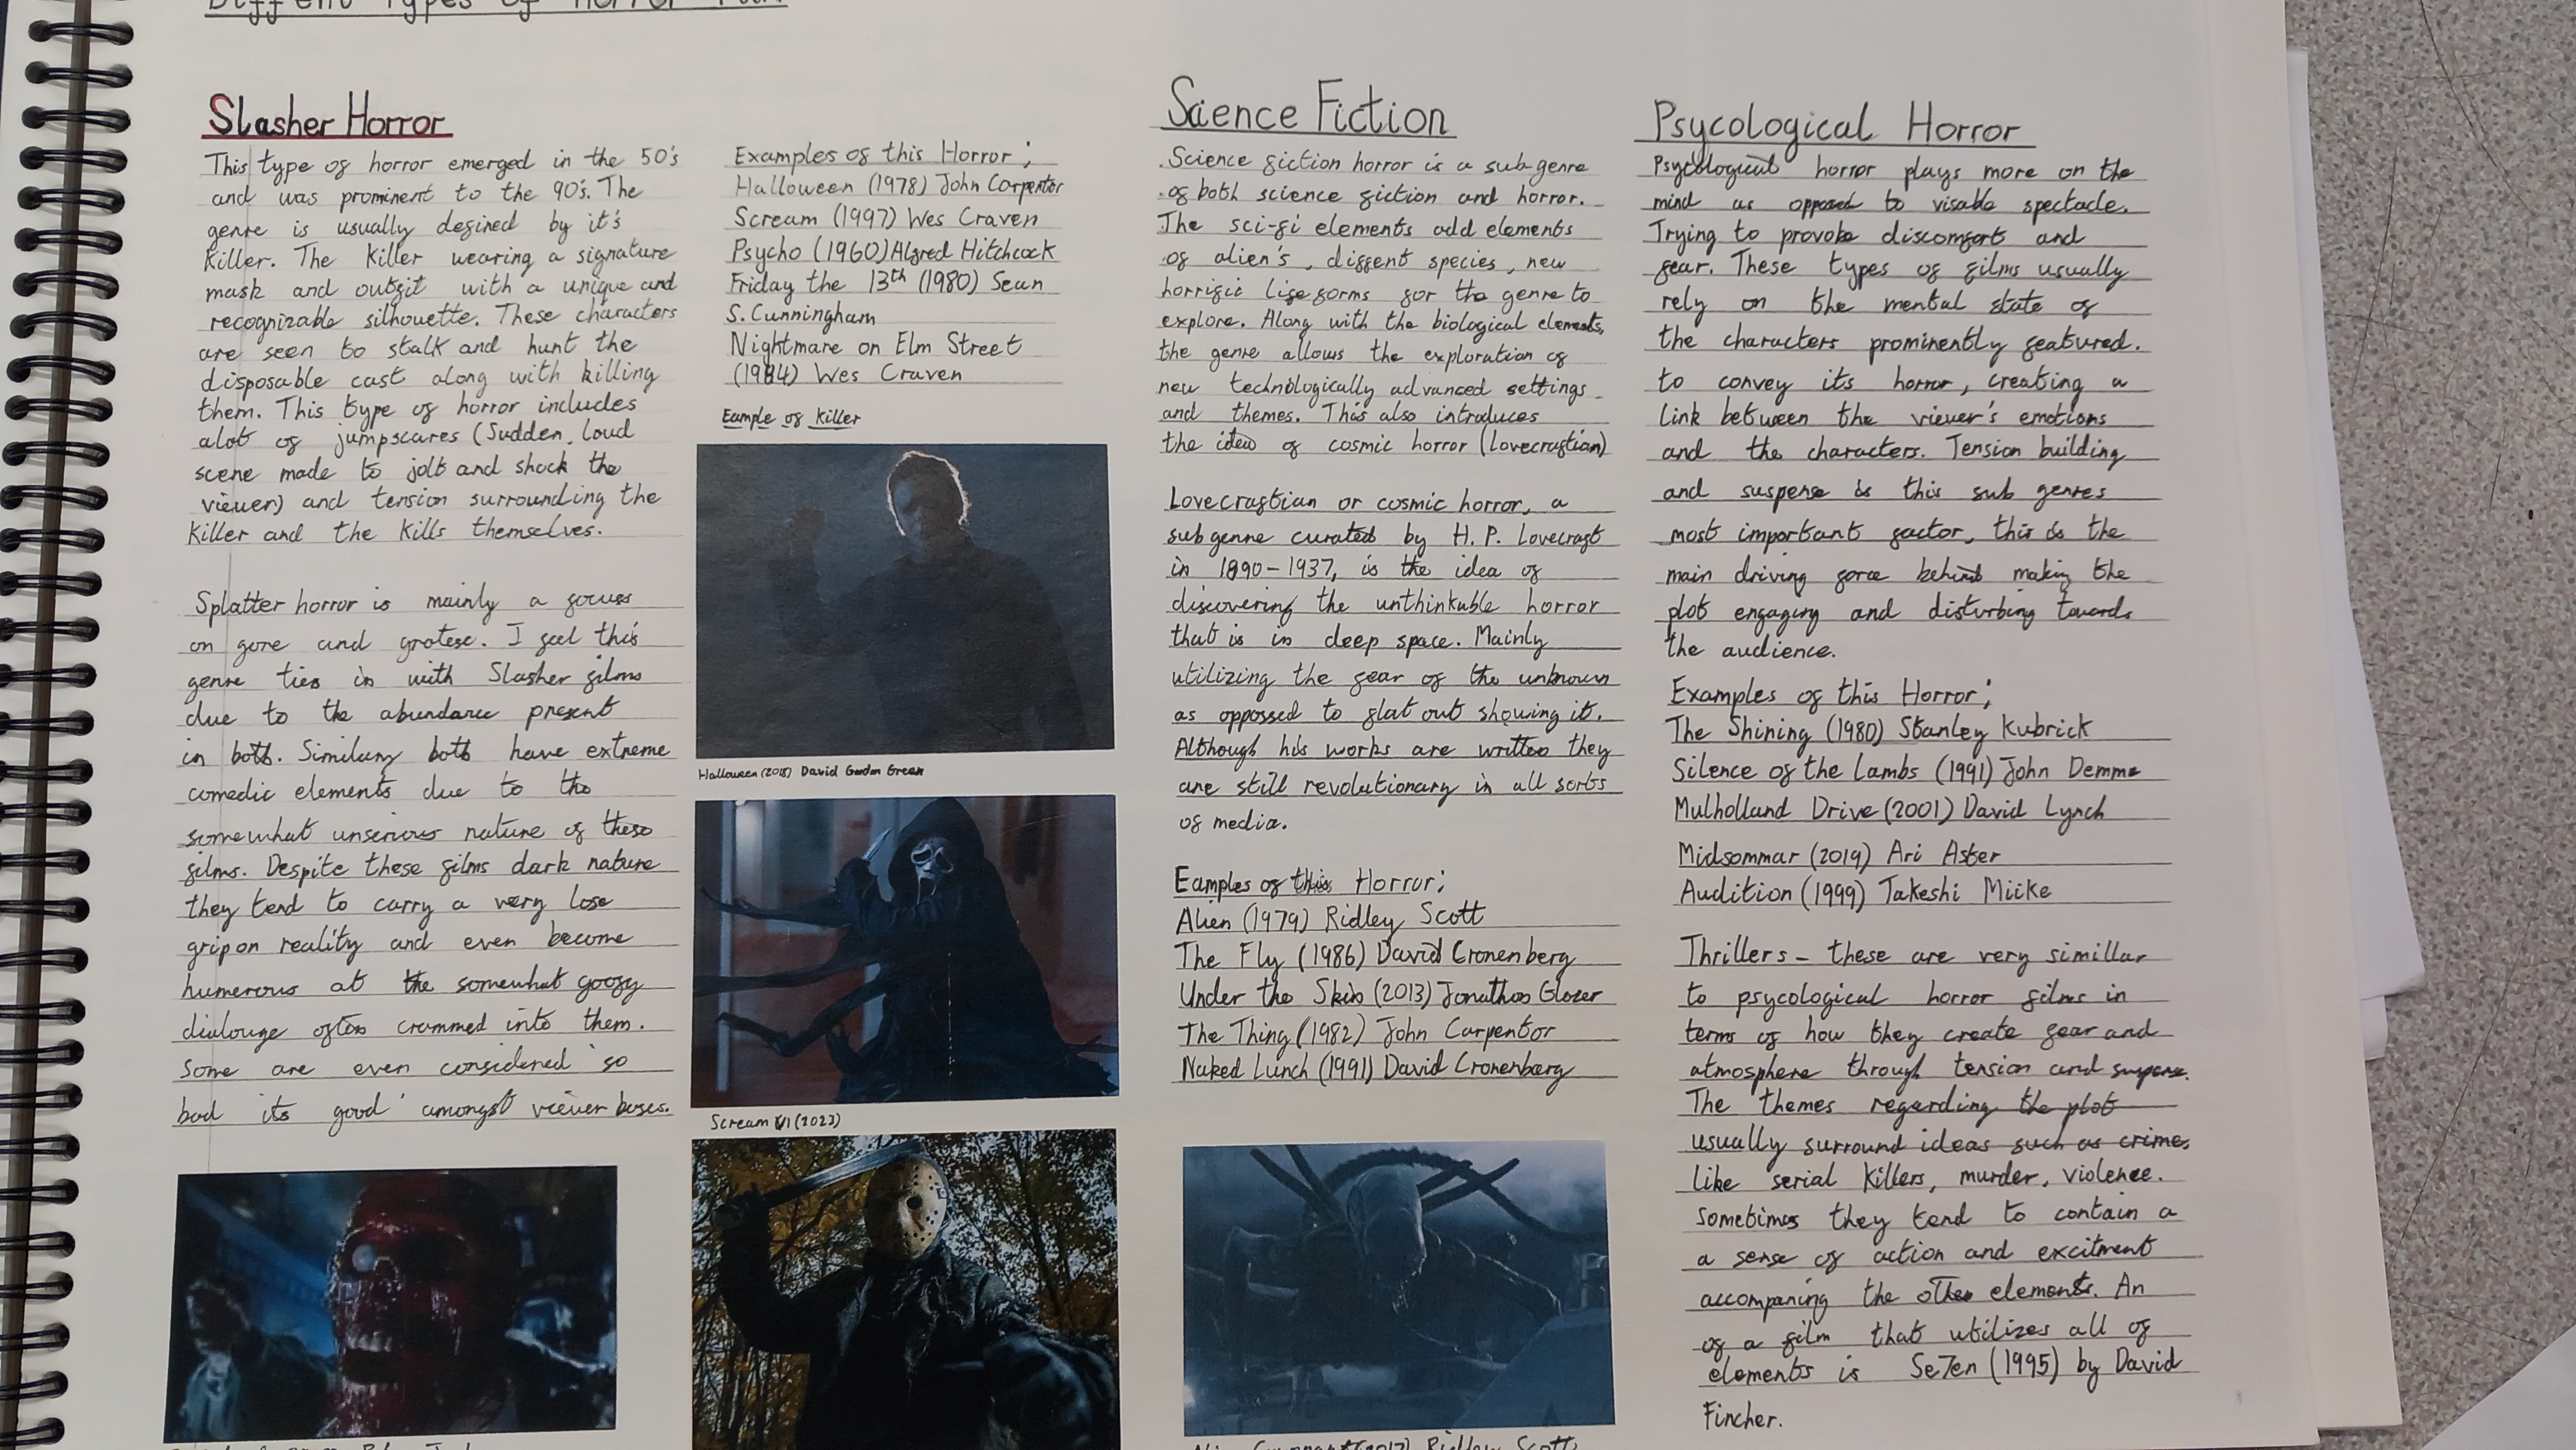 Slasher Horror
This type of horror emerged in the 50's
and was prominent to the 90's. The
genre is usually defined by it's
Killer. The killer wearing a signature
mask and outfit with a unique and
recognizable silhouette. These characters
are seen to stalk and hunt the
disposable cast along with killing
them. This type of horror includes
alot of jumpscares (Sudden, loud
scene made to jolt and shock the
viewer) and tension surrounding the
killer and the kills themselves.
Splatter horror is mainly a focus
on gore and grotese. I feel this
genre ties in with Slasher films
due to the abundance present
in both. Similary both have extreme
comedic elements due to the
somewhat unserious nature of these
films. Despite these films dark nature
they tend to carry a very lose
grip on reality and even become
humerous at the somewhat goofy
dialouge often crammed into them.
Some are even considered 'so
bad its good' amongst viewer bases.
Examples of this Horror;
Halloween (1978) John Carpentor
Scream (1997) Wes Craven
Psycho (1960) Alfred Hitchcock
Friday the 13th (1980) Sean
S. Cunningham
Nightmare on Elm Street
(1984) Wes Craven
Eample of Killer
Halloween (2018) David Gordon Green
Scream VI (2022)
Science Fiction
Science fiction horror is a subgenre
of both science fiction and horror.
The sci-fi elements add elements
of alien's, diffent species, new
horrific lifeforms for the genre to
explore. Along with the biological elements,
the genre allows the exploration of
new technologically advanced settings
and themes. This also introduces
the idea of cosmic horror (lovecraftian)
Lovecraftian or cosmic horror, a
subgenre curated by H.P. Lovecraft
in 1890-1937, is the idea of
discovering the unthinkable horror
that is in deep space. Mainly
utilizing the fear of the unknown
as oppossed to flat out showing it.
Although his works are written they
are still revolutionary in all sorts
of media.
Eamples of this Horror;
Alien (1979) Ridley Scott
The Fly (1986) David Cronenberg
Under the Skin (2013) Jonathan Glazer
The Thing (1982) John Carpentor
Naked Lunch (1991) David Cronenberg
Psycological Horror
Psychlogical horror plays more on the
mind as opposed to visable spectacle.
Trying to provoke discomfort and
fear. These types of films usually
rely on the mental state of
the characters prominently featured.
to convey its horror, creating a
link between the viewer's emotions
and the characters. Tension building
and suspense is this sub genres
most important factor, this is the
main driving force behind making the
plot engaging and disturbing towards
the audience.
Examples of this Horror;
The Shining (1980) Stanley Kubrick
Silence of the Lambs (1991) John Demme
Mulholland Drive (2001) David Lynch
Midsommar (2019) Ari Aster
Audition (1999) Takeshi Miike
Thrillers - these are very simillar
to psycological horror films in
terms of how they create fear and
atmosphere through tension and supense.
The themes regarding the plot
usually surround ideas such as crimes
like serial killers, murder, violence.
Sometimes they tend to contain a
a sense of action and excitment
accompaning the other elements. An
of a film that utilizes all of
elements is Se7en (1995) by David
Fincher.